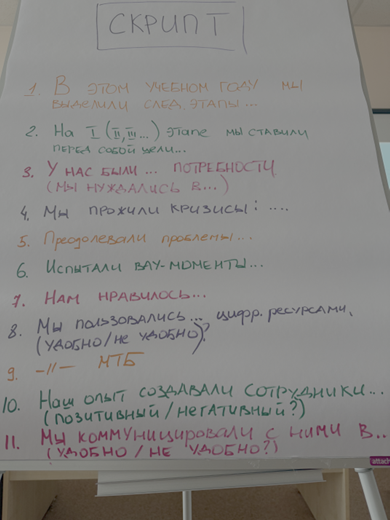 СКРИПТ
1. В ЭТОМ УЧЕБНОМ ГОДУ МЫ
ВЫДЕЛИЛИ СЛЕД. ЭТАПЫ...
2. На I (II, III...) ЭТАПЕ МЫ СТАВИЛИ
ПЕРЕД СОБОЙ ЦЕЛИ...
3. У НАС БЫЛИ... ПОТРЕБНОСТИ
(МЫ НУЖДАЛИСЬ В...)
4. МЫ ПРОЖИЛИ КРИЗИСЫ: ....
5. Преодолевали проблемы...
6. Испытали ВАУ-МОМЕНТЫ...
7. НАМ НРАВИЛОСЬ...
8. МЫ ПОЛЬЗОВАЛИСЬ... ЦИФР. РЕСУРСАМИ,
(УДОБНО/НЕ УДОБНО)?
9. -//- МТБ
10. НАШ ОПЫТ СОЗДАВАЛИ СОТРУДНИКИ...
(ПОЗИТИВНЫЙ/НЕГАТИВНЫЙ?)
11. МЫ КОММУНИЦИРОВАЛИ С НИМИ В...
(УДОБНО/НЕ УДОБНО?)
attach